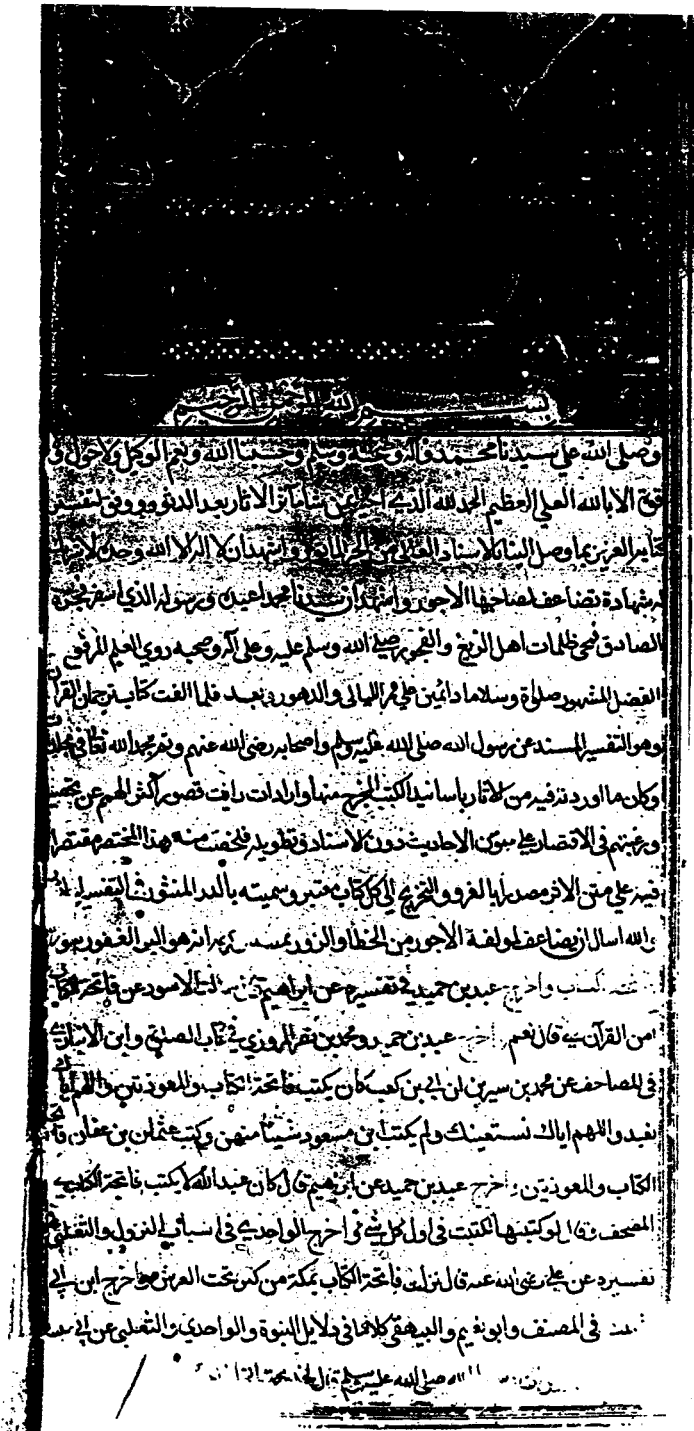 بسم الله الرحمن الرحيم
وصلى الله على سيدنا محمد واله وصحبه وسلم وحسبنا الله ونعم الوكيل ولا حول و
قوة الا بالله العلي العظيم الحمد لله الذي احيا بمن شا ماثر الاثار بعد الدثور ووفق لتفسير
كتابه العزيز بما وصل الينا بالاسناد العالي من الخبر الماثور واشهد ان لا اله الا الله وحده لا شريك
له شهادة تضاعف لصاحبها الاجور واشهد ان سيدنا محمدا عبده ورسوله الذي اسفر فجره
الصادق فمحى ظلمات اهل الزيغ والفجور صلى الله وسلم عليه وعلى آله وصحبه ذوي العلم المرفوع
الفضل المشهور صلوة وسلاما دائمين على ممر الليالي والدهور وبعد فلما الفت كتاب ترجمان القرآن
وهو التفسير المسند عن رسول الله صلى الله عليه وسلم واصحابه رضى الله عنهم وتم بحمد الله تعالى في مجلدات
وكان ما اوردته فيه من الاثار باسانيد الكتب المخرج منها وارادات رايت قصور اكثر الهمم عن تحصيله
ورغبتهم في الاقتصار على متون الاحاديث دون الاسناد وتطويله فلخصت منه هذا المختصر مقتصرا
فيه على متن الاثر مصدرا بالعزو والتخريج الى كل كتاب معتبر وسميته بالدر المنثور في التفسير
والله اسال ان يضاعف لمولفه الاجور من الخطا والزور بمنه وكرمه انه هو البر الغفور
الكتاب واخرج عبد بن حميد في تفسيره عن ابراهيم قال سالت الاسود عن فاتحة الكتاب
امن القرآن هي قال نعم واخرج عبد بن حميد ومحمد بن نصر المروزي في كتاب الصلوة وابن الانباري
في المصاحف عن محمد بن سيرين ان ابي بن كعب كان يكتب فاتحة الكتاب والمعوذتين واللهم اياك
نعبد واللهم اياك نستعينك ولم يكتب ابن مسعود شيئا منهن وكتب عثمان بن عفان فاتحة
الكتاب والمعوذتين واخرج عبد بن حميد عن ابراهيم قال كان عبد الله لا يكتب فاتحة الكتاب في
المصحف وقال لو كتبتها لكتبت في اول كل شي واخرج الواحدي في اسباب النزول والثعلبي في
تفسيره عن علي رضى الله عنه قال نزلت فاتحة الكتاب بمكة من كنز تحت العرش واخرج ابن ابي
في المصنف وابو نعيم والبيهقي كلاهما في دلايل النبوة والواحدي والثعلبي عن ابي
الله صلى الله عليه وسلم قال